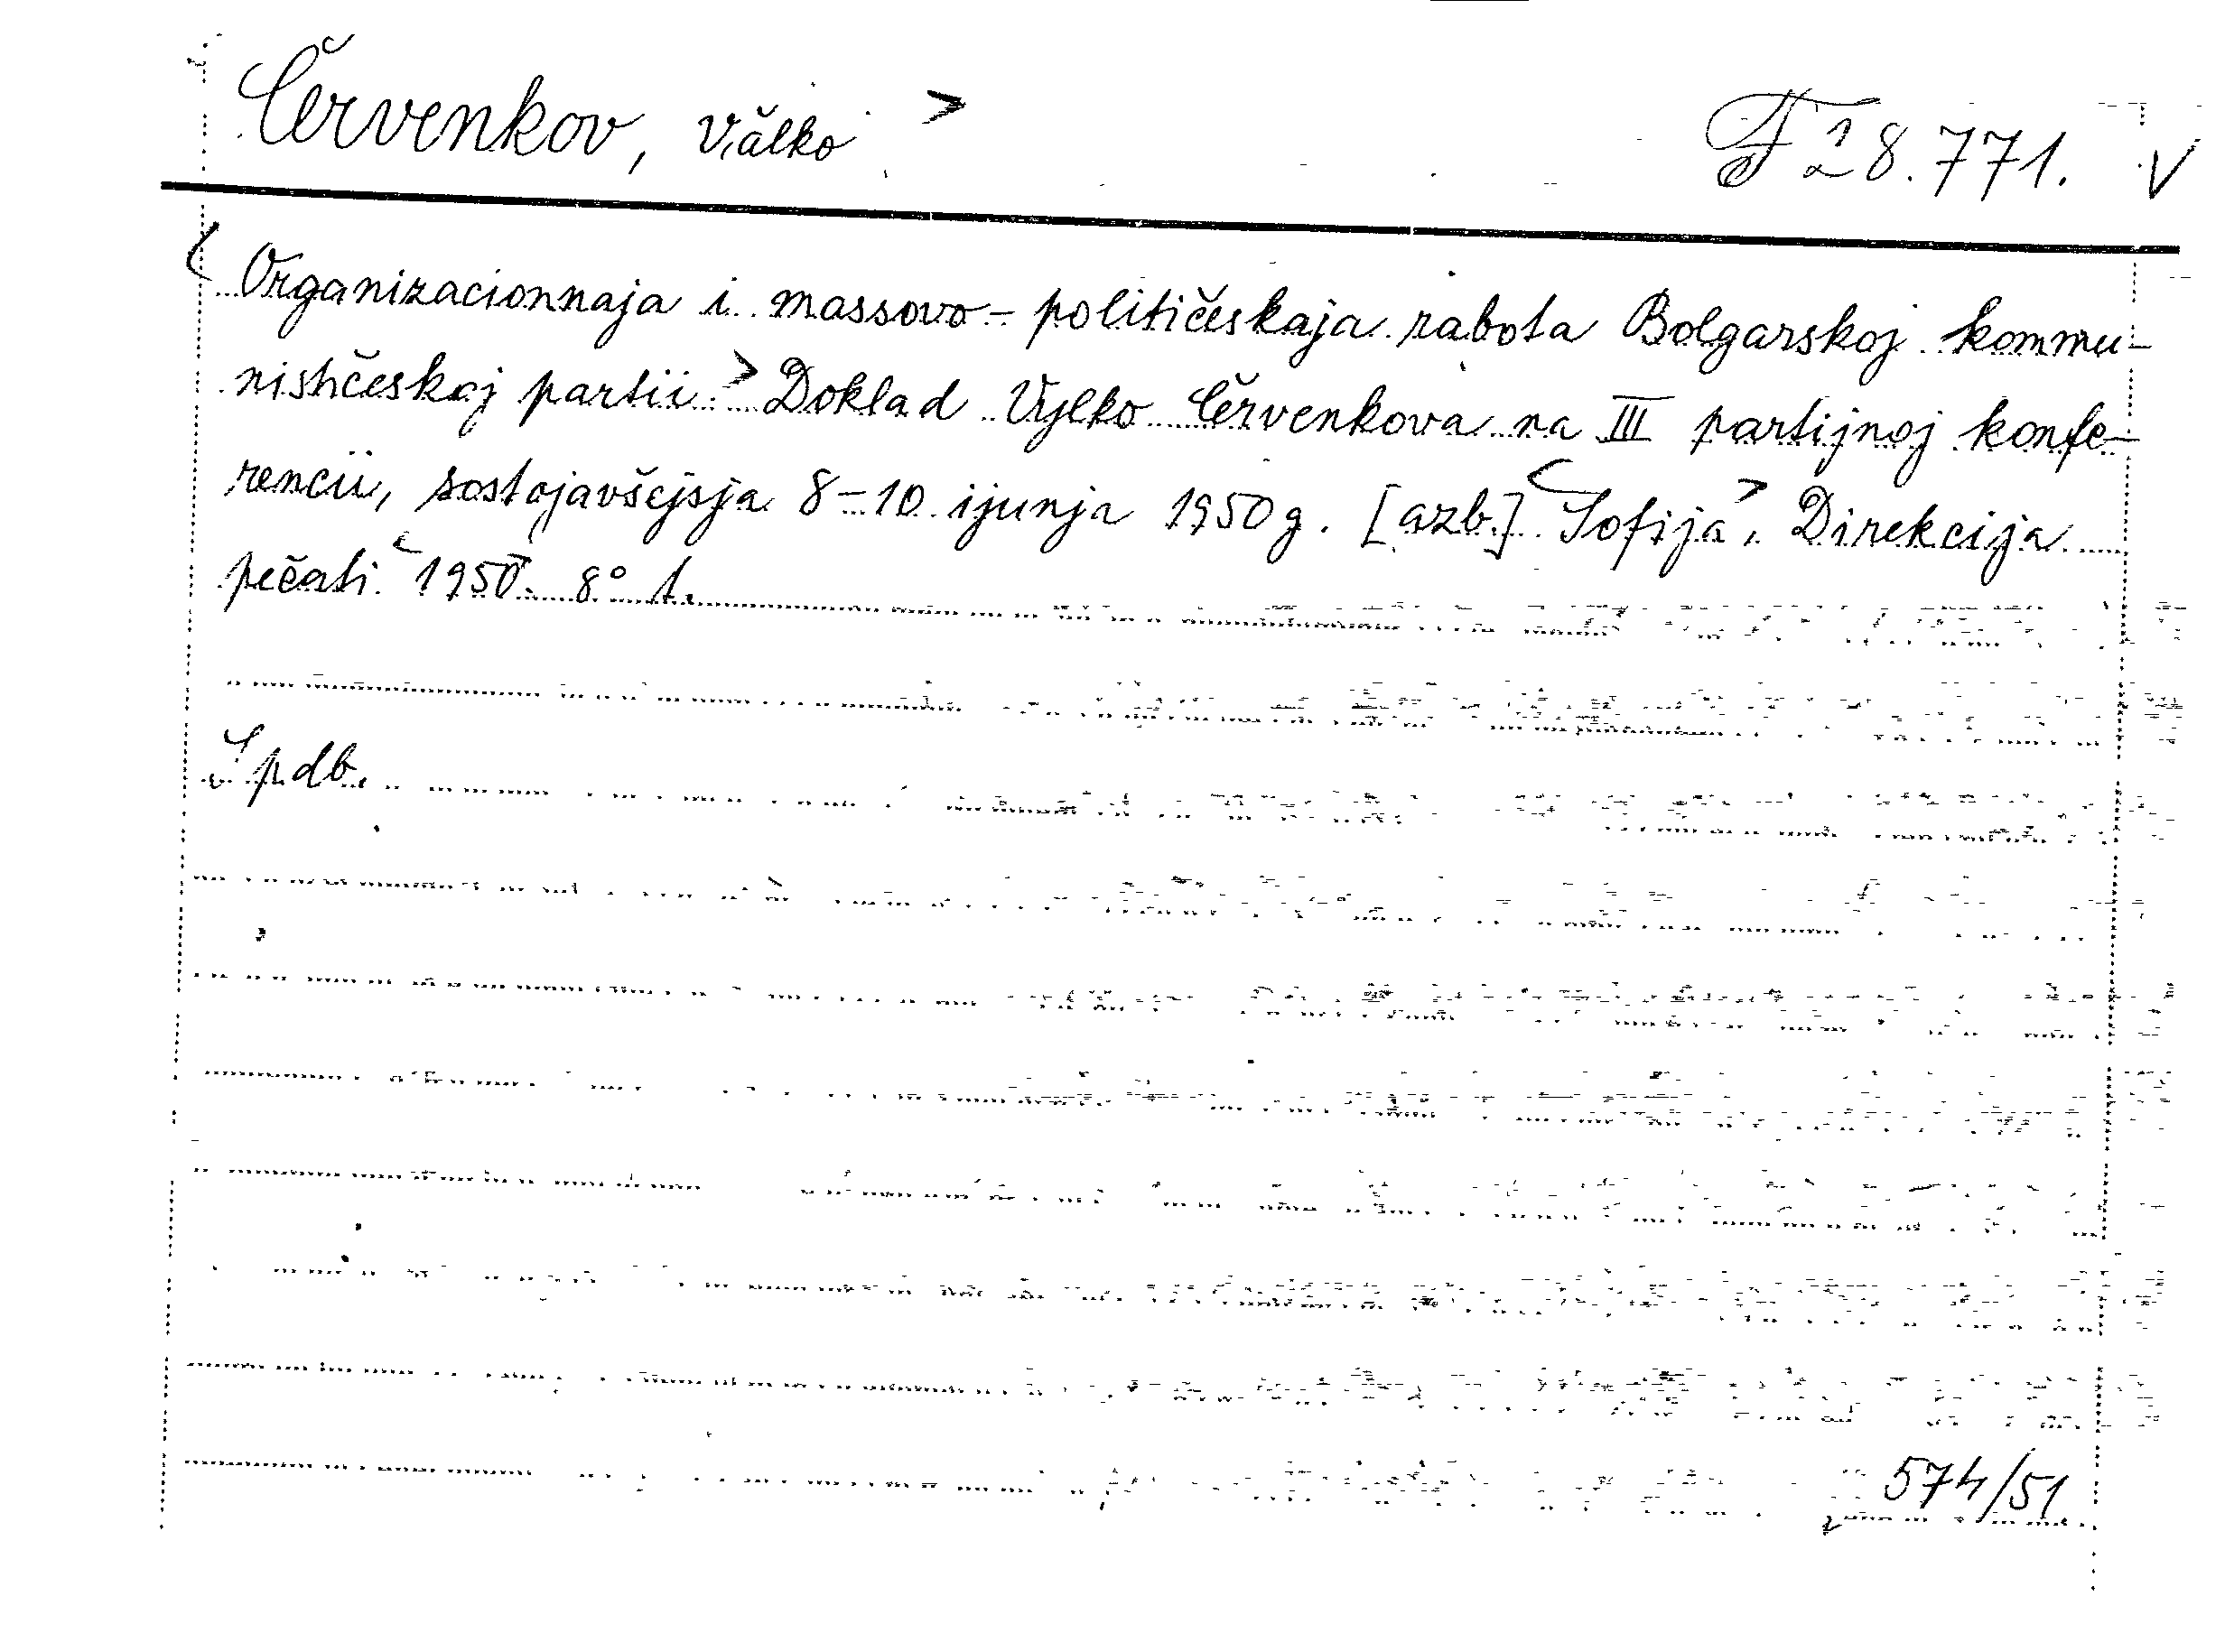 Červenkov, Vălko >
F 28.771. V
< Organizacionnaja i massovo-političeskaja rabota Bolgarskoj kommu-
nističeskoj partii. > Doklad Vylko Červenkova na III partijnoj konfe-
rencii, sostojavšejsja 8-10 ijunja 1950 g. [azb.] < Sofija >, Direkcija
pečati < 1950. 8° 1.
Špdb.
574/51